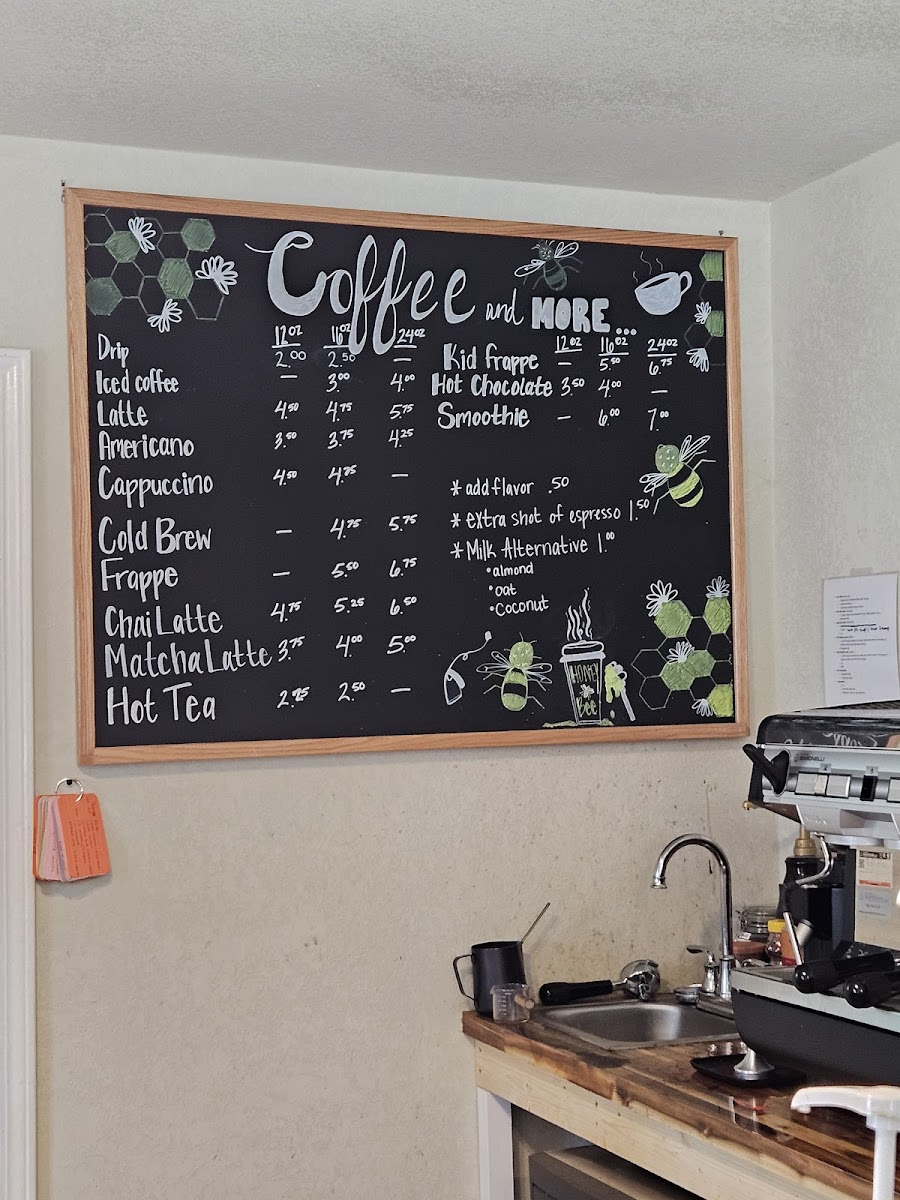 Coffee and MORE...
12oz 16oz 24oz
Drip 2.00 2.50 —
Iced coffee — 3.00 4.00
Latte 4.50 4.75 5.75
Americano 3.50 3.75 4.25
Cappuccino 4.50 4.75 —
Cold Brew — 4.75 5.75
Frappe — 5.50 6.75
Chai Latte 4.75 5.25 6.50
Matcha Latte 3.75 4.00 5.00
Hot Tea 2.25 2.50 —
12oz 16oz 24oz
Kid frappe — 5.50 6.75
Hot Chocolate 3.50 4.00 —
Smoothie — 6.00 7.00
* add flavor .50
* extra shot of espresso 1.50
* Milk Alternative 1.00
• almond
• oat
• Coconut
HONEY
Bee
SIMONELLI